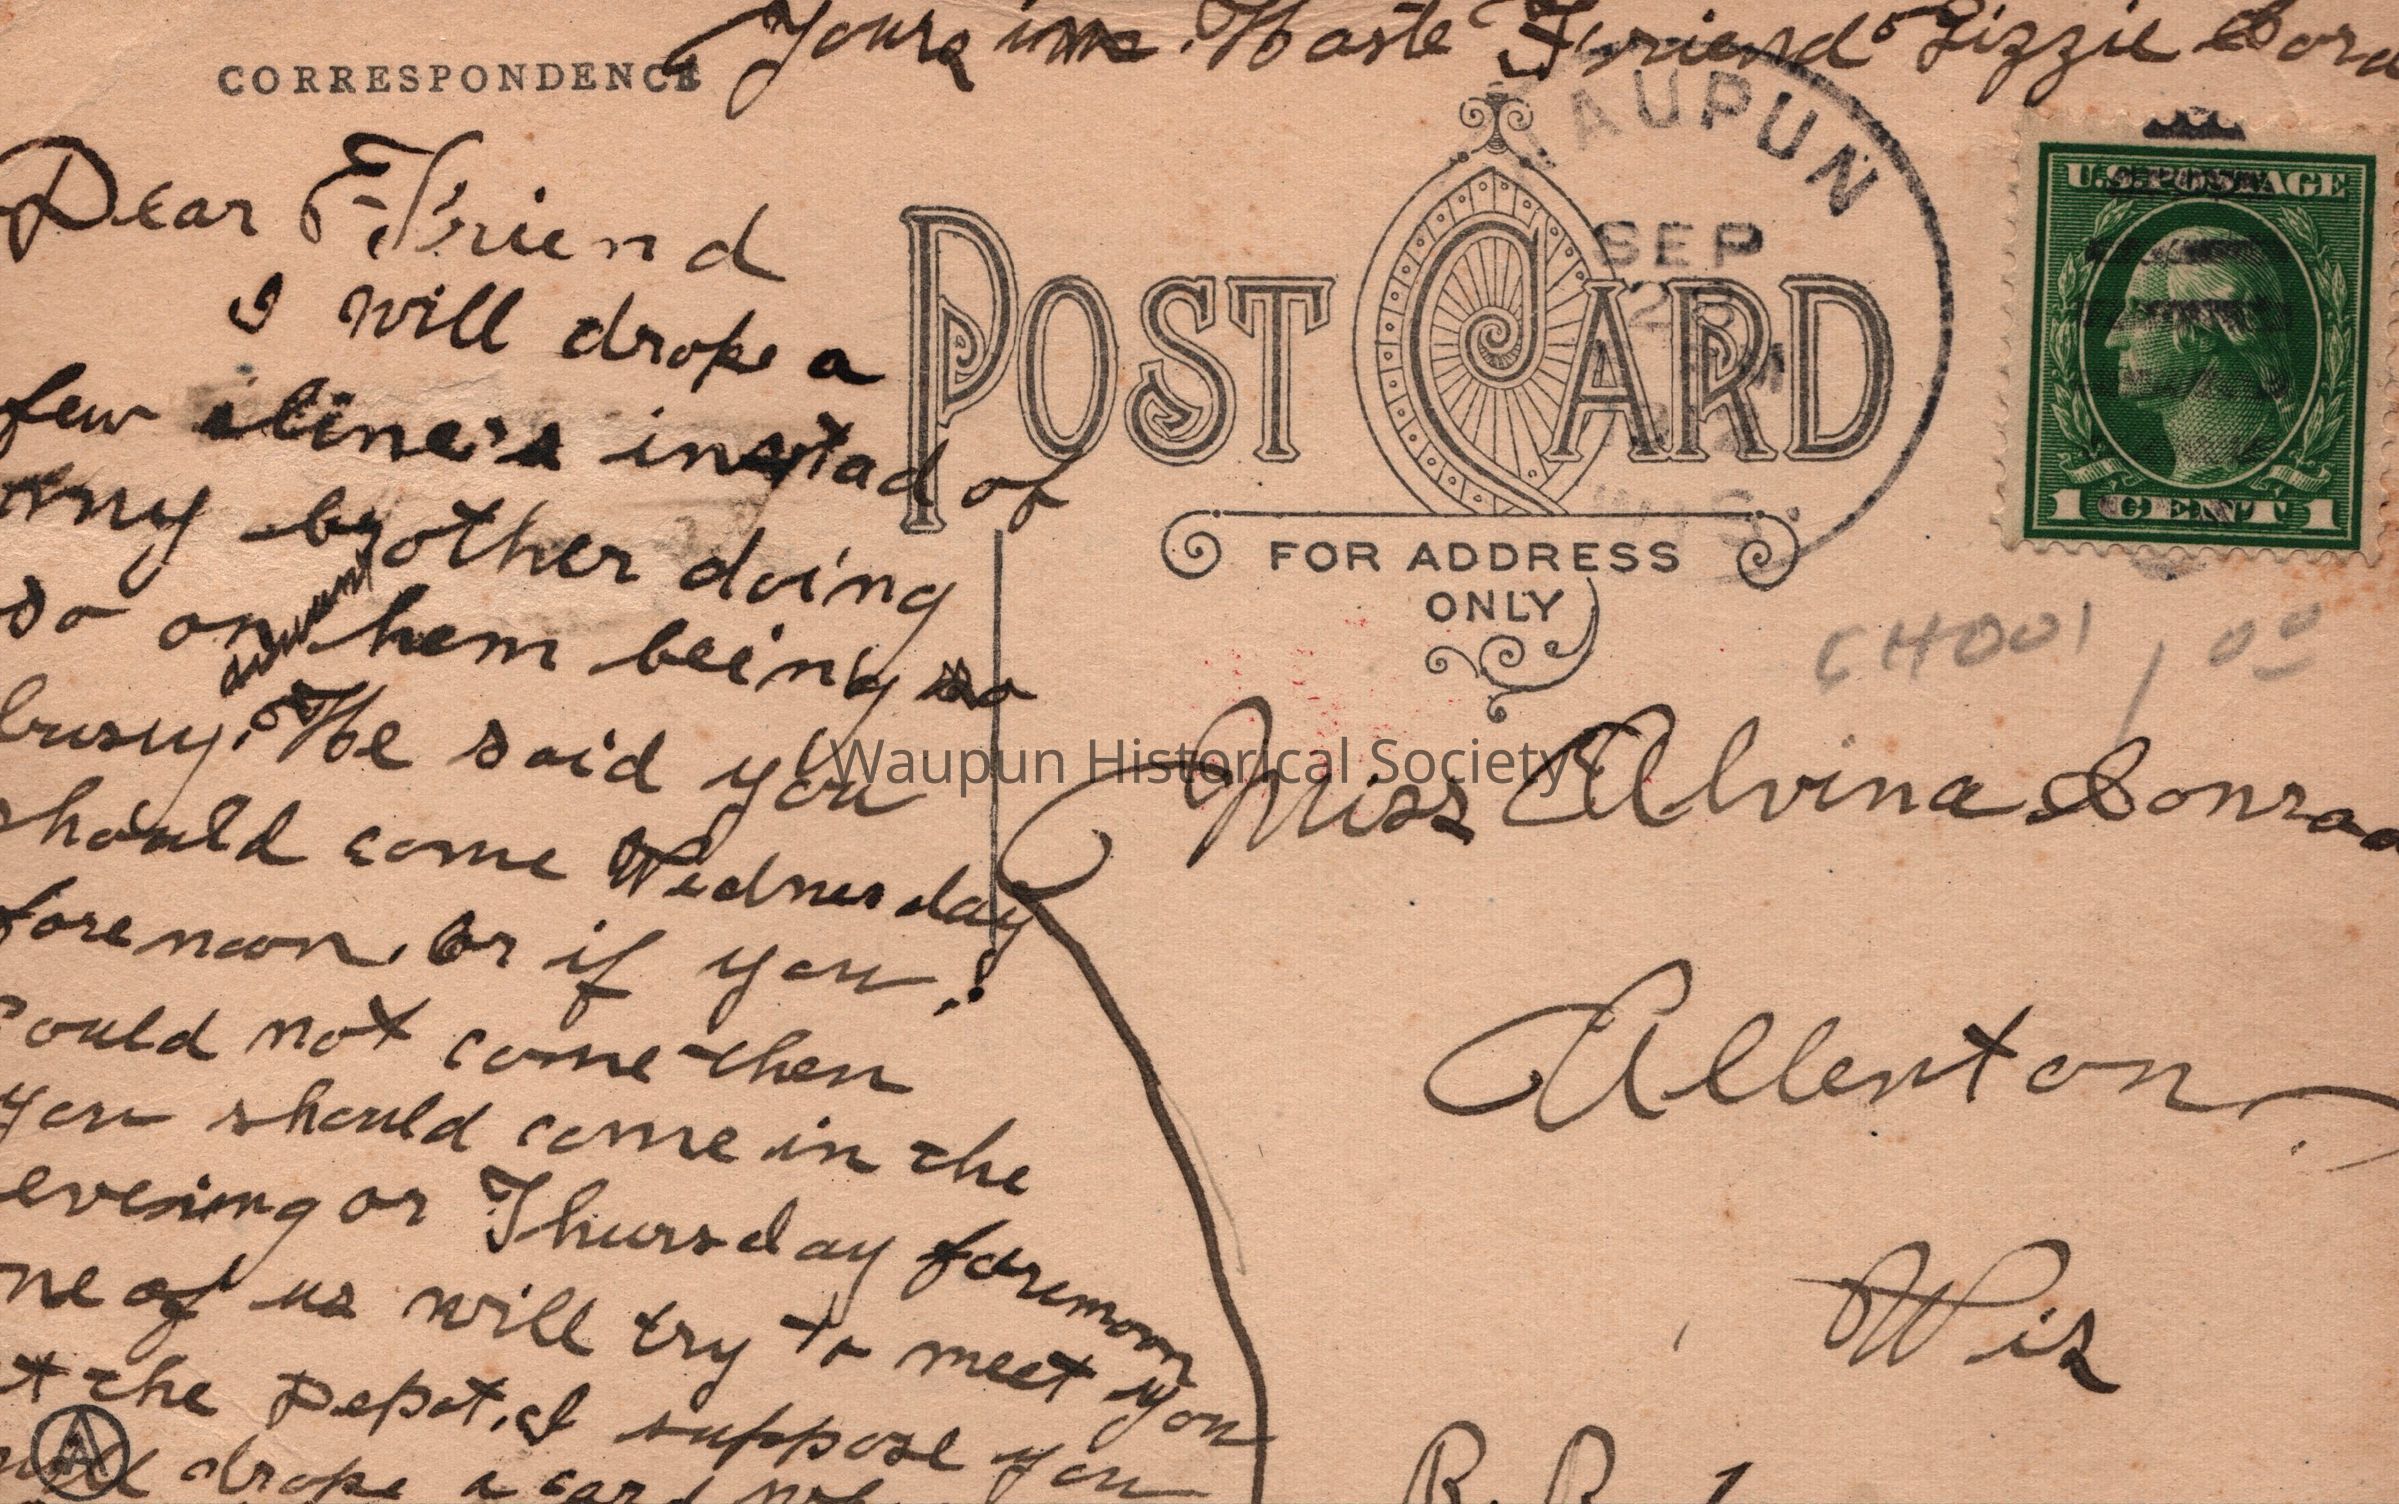 Yours in Haste Friend Lizzie
CORRESPONDENCE
Dear Friend
I will drope a
few lines instad of
my brother doing
so on hem being so
busy. He said you
should come Wednesday
forenoon. Or if you
could not come then
you should come in the
evening or Thursday forenoon
ne of us will try to meet you
t the Depot. I suppose you
will drope a card
AUPUN
SEP
POST CARD
FOR ADDRESS
ONLY
U.S. POSTAGE
1 CENT 1
CH001 1 00
Waupun Historical Society
Miss Alvina Conrad
Allenton
Wis
R. R. 1
A